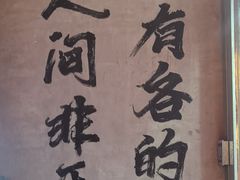 有各的
人间非